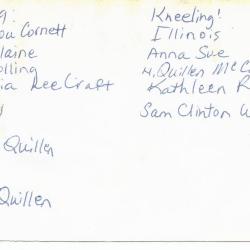 9:
ou Cornett
laine
olling
ia Lee Craft
Quillen
Quillen
Kneeling!
Illinois
Anna Sue
H. Quillen McC
Kathleen R
Sam Clinton W